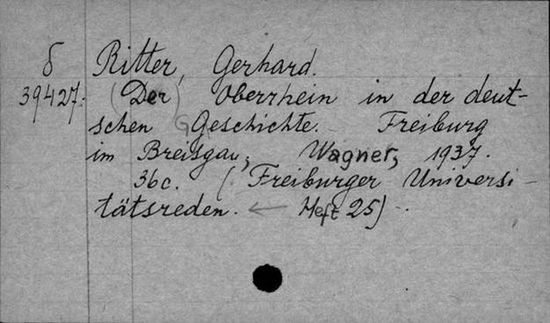 δ Ritter, Gerhard.
39427. (Der) Oberrhein in der deut-
schen Geschichte. Freiburg
im Breisgau, Wagner, 1937.
36c. (Freiburger Universi-
tätsreden. ← Heft 25) -